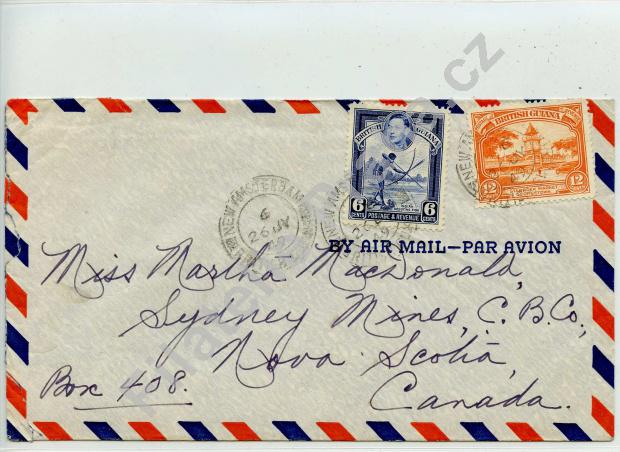 BRITISH GUIANA
6 CENTS POSTAGE & REVENUE 6 CENTS
BRITISH GUIANA
12 12
NEW AMSTERDAM
26 MY
BY AIR MAIL—PAR AVION
Miss Martha MacDonald,
Sydney Mines, C. B. Co.,
Nova Scotia,
Box 408.
Canada.